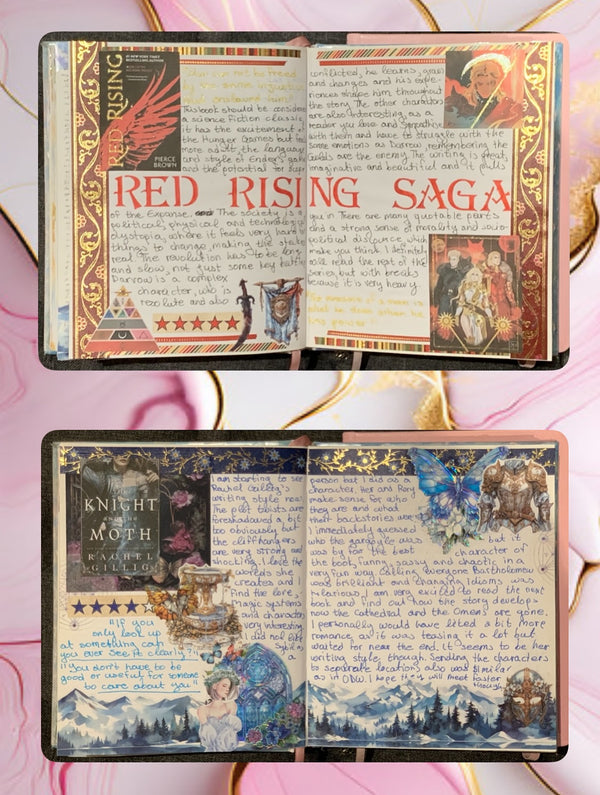 #1 NEW YORK TIMES BESTSELLING AUTHOR
RED RISING
PIERCE
BROWN
This book should be considered
a science fiction classic
it has the excitement of
the Hunger Games but far
more adult, the language
and style of Ender's game
and the potential for sup
RED RISING SAGA
of the Expanse. The society is a
political, physical and technological
dystopia, where it feels very hard
things to change, making the stakes
real. The revolution has to be long
and slow, not just some key battle
Darrow is a complex
character, who is
resolute and also
conflicted, he learns, grows
and changes and his expe-
riences shape him throughout
the story. The other characters
are also interesting, as a
reader you love and sympathize
with them and have to struggle with the
same emotions as Darrow, remembering the
Golds are the enemy. The writing is great,
imaginative and beautiful and it pulls
you in. There are many quotable parts
and a strong sense of morality and socio-
political discource which
make you think. I definitely
will read the rest of the
series, but with breaks
because it is very heavy.
The measure of a man is
what he does when he
has power!
THE
KNIGHT
AND THE
MOTH
RACHEL
GILLIG
"If you
only look up
at something can
you ever see it clearly?"
"You don't have to be
good or useful for someone
to care about you!"
I am starting to see
Rachel Gillig's
writing style now.
The plot twists are
foreshadowed a bit
too obviously but
the cliffhangers
are very strong and
shocking. I love the
worlds she
creates and I
find the lore,
magic systems
and characters
very interesting.
I did not like
Sybil as
a
person but I did as a
character. Her and Rory
make sense for who
they are and what
their backstories are.
I immediately guessed
who the gargoyle was but it
was by far the best character of
the book, funny, sassy and chaotic in a
very fun way. Calling everyone Bartholomew
was brilliant and changing idioms was
hilarious. I am very excited to read the next
book and find out how the story develops
now the Cathedral and the Omens are gone.
I personally would have liked a bit more
romance, as it was teasing it a lot but
waited for near the end. It seems to be her
writing style though. Sending the characters
to separate locations also was similar
as in ODW. I hope they will meet faster
though.